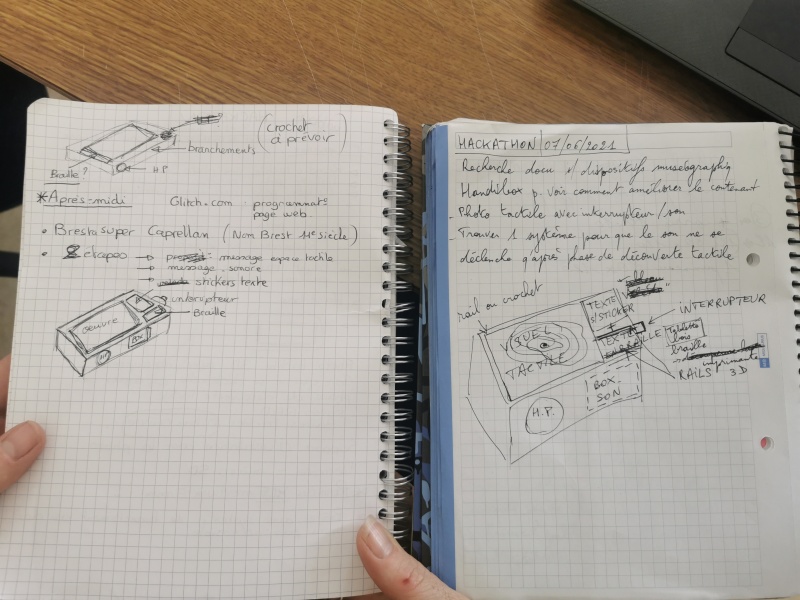 (crochet
à prévoir)
branchements
Braille ?
H.P
* Après-midi
Glitch.com : programmat°
page web
• Bresta super Caprellan (Nom Brest 11e siècle)
• 2 étapes → message espace tactile
→ message sonore
→ stickers texte
interrupteur
Braille
oeuvre
HP
HACKATHON | 07/06/2021
Recherche docu s/ dispositifs muséographiq
Handibox p. voir comment améliorer le contenant
- Photo tactile avec interrupteur/son
- Trouver 1 système pour que le son ne se
déclenche q'après phase de découverte tactile
rail ou crochet
TEXTE
s/STICKER
+
TEXTE
BRAILLE
INTERRUPTEUR
VISUEL
TACTILE
Tablette
bois
braille
imprimante
3D
RAILS
BOX
SON
H.P.